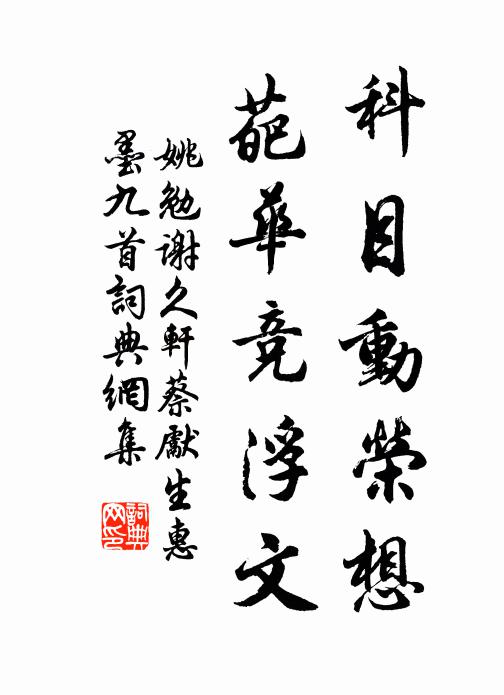 科目動榮想
葩華競浮文
姚勉謝久軒蔡獻生惠
墨九首詞典網集
詞典网印